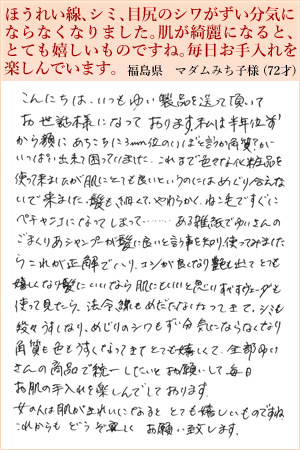 ほうれい線、シミ、目尻のシワがずい分気に
ならなくなりました。肌が綺麗になると、
とても嬉しいものですね。毎日お手入れを
楽しんでいます。 福島県 マダムみち子様(72才)
こんにちは、いつもゆい製品を送って頂いて
お世話様になっております。私は半年位前
から顔にあちこちに3mm位のいぼと言うか角質?が
いっぱい出来て困っていました。これまで色々な化粧品を
使って来ましたが肌にとても良いというのにはめぐり合えない
で来ました。髪も細くて、やわらかく、ねこ毛ですぐに
ペチャンコになってしまって……… ある雑紙でゆいさんの
ごまくりあシャンプーが髪に良いと言う事を知り使ってみました
らこれが正解でハリ、コシが良くなり艶も出てとても
嬉しくなり髪にいいなら肌にもいいと思い
使って見たら、法令線もめだたなくなってきて、シミも
段々うすくなり、めじりのシワもずい分気にならなくなり
角質も色もうすくなってきてとても嬉しくて、全部ゆい
さんの商品で統一したいとお願いして毎日
お肌の手入れを楽しんでしております。
女の人は肌がきれいになると とても嬉しいものですね
これからも どうぞ宜しく お願い致します。